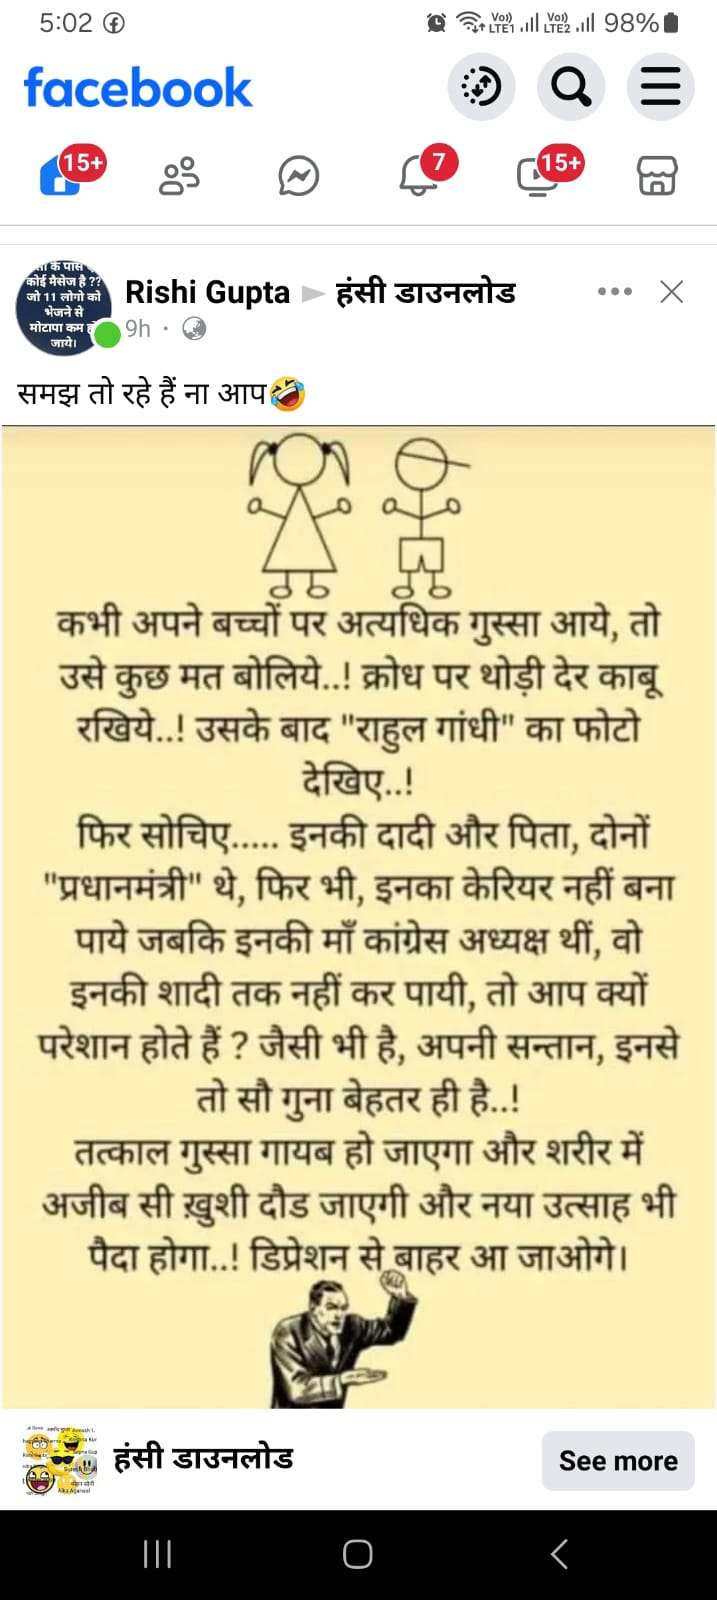 5:02
Vo)) LTE1 Vo)) LTE2 98%
facebook
15+ 7 15+
के पास
कोई मैसेज है ??
जो 11 लोगो को
भेजने से
मोटापा कम
जाये।
Rishi Gupta हंसी डाउनलोड
9h
समझ तो रहे हैं ना आप🤣
कभी अपने बच्चों पर अत्यधिक गुस्सा आये, तो
उसे कुछ मत बोलिये..! क्रोध पर थोड़ी देर काबू
रखिये..! उसके बाद "राहुल गांधी" का फोटो
देखिए..!
फिर सोचिए..... इनकी दादी और पिता, दोनों
"प्रधानमंत्री" थे, फिर भी, इनका केरियर नहीं बना
पाये जबकि इनकी माँ कांग्रेस अध्यक्ष थीं, वो
इनकी शादी तक नहीं कर पायी, तो आप क्यों
परेशान होते हैं ? जैसी भी है, अपनी सन्तान, इनसे
तो सौ गुना बेहतर ही है..!
तत्काल गुस्सा गायब हो जाएगा और शरीर में
अजीब सी ख़ुशी दौड जाएगी और नया उत्साह भी
पैदा होगा..! डिप्रेशन से बाहर आ जाओगे।
हंसी डाउनलोड
See more